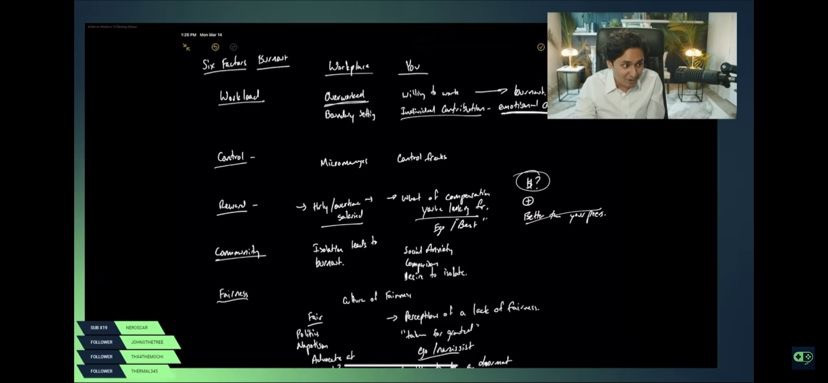 1:25 PM Mon Mar 14
Six Factors Burnout Workplace You
Workload Overworked Willing to work → burnout.
Boundary setting Individual Contribution - emotional
Control - Micromanager Control freaks
$?
Reward - → Hrly/overtime → → What of compensation
salaried you're looking for.
Ego / "Best"
Better than your peers.
Community Isolation leads to Social Anxiety
burnout. Comparison
Desire to isolate.
Fairness Culture of Fairness
Fair → Perception of a lack of fairness.
Politics "taken for granted"
Nepotism ego/narcissist
Advocate at
a doormat
SUB #19 NEROSCAR
FOLLOWER JOHNSTHETREE
FOLLOWER THIAATHEMOCHI
FOLLOWER THERMAL345